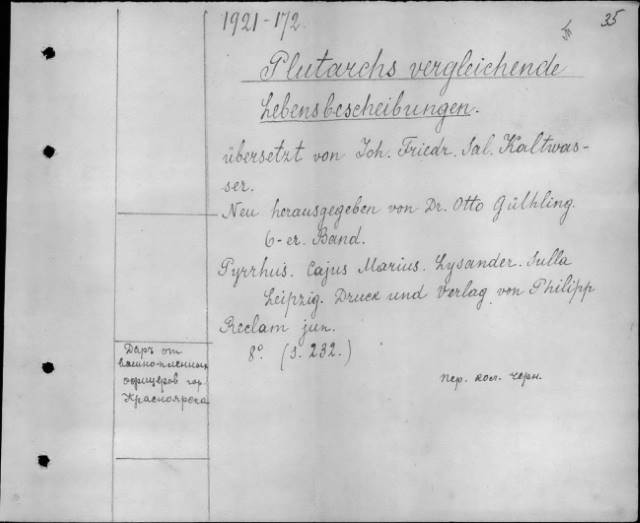 1921-172.
35
Plutarchs vergleichende
Lebensbescheibungen.
übersetzt von Joh. Friedr. Sal. Kaltwas-
ser.
Neu herausgegeben von Dr. Otto Gülhling.
6-er. Band.
Pyrrhus. Cajus Marius. Lysander. Sulla
Leipzig. Druck und Verlag von Philipp
Reclam jun.
8°. (S. 232.)
Даръ от
военно-пленных
офицеров гор.
Красноярска
пер. кол. черн.